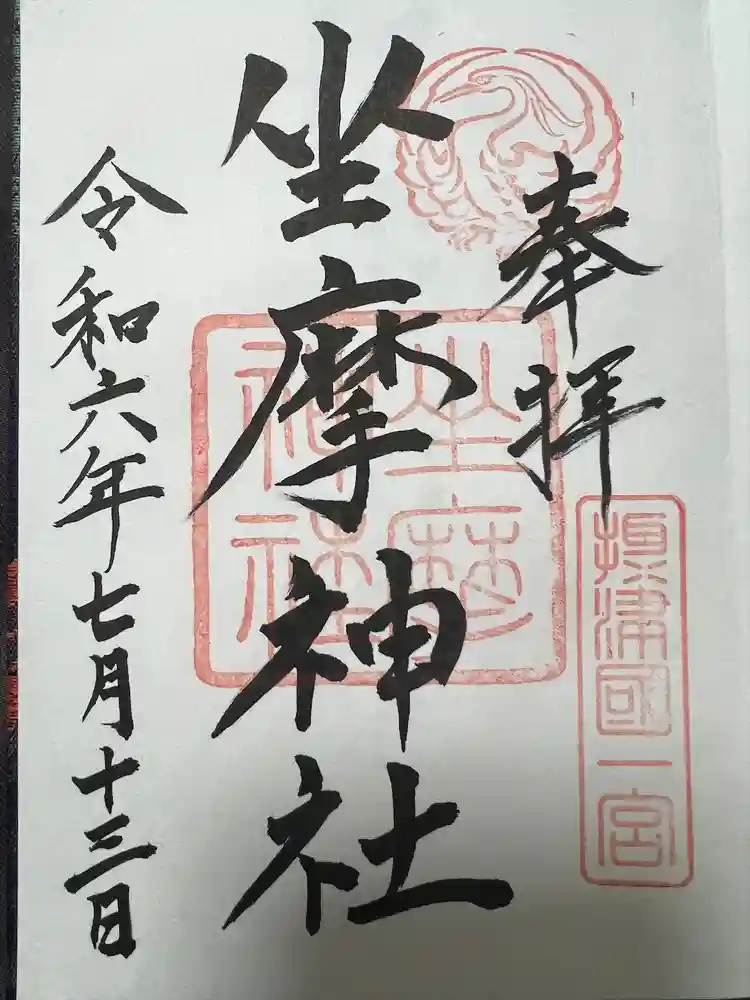 奉拝
摂津國一宮
坐摩神社
坐摩神社
令和六年七月十三日